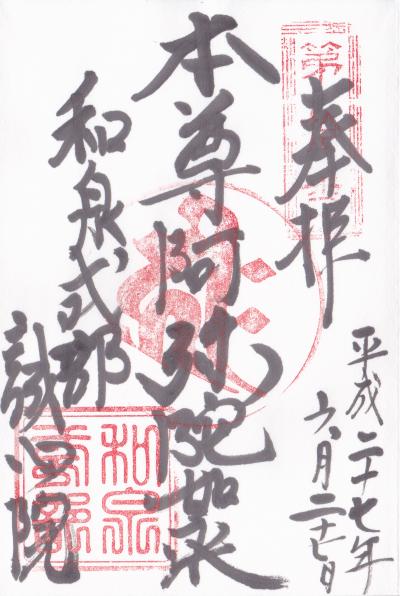 奉拝
平成二十七年
六月二十七日
本尊阿弥陀如来
和泉式部
誠心院
和泉
式部
第